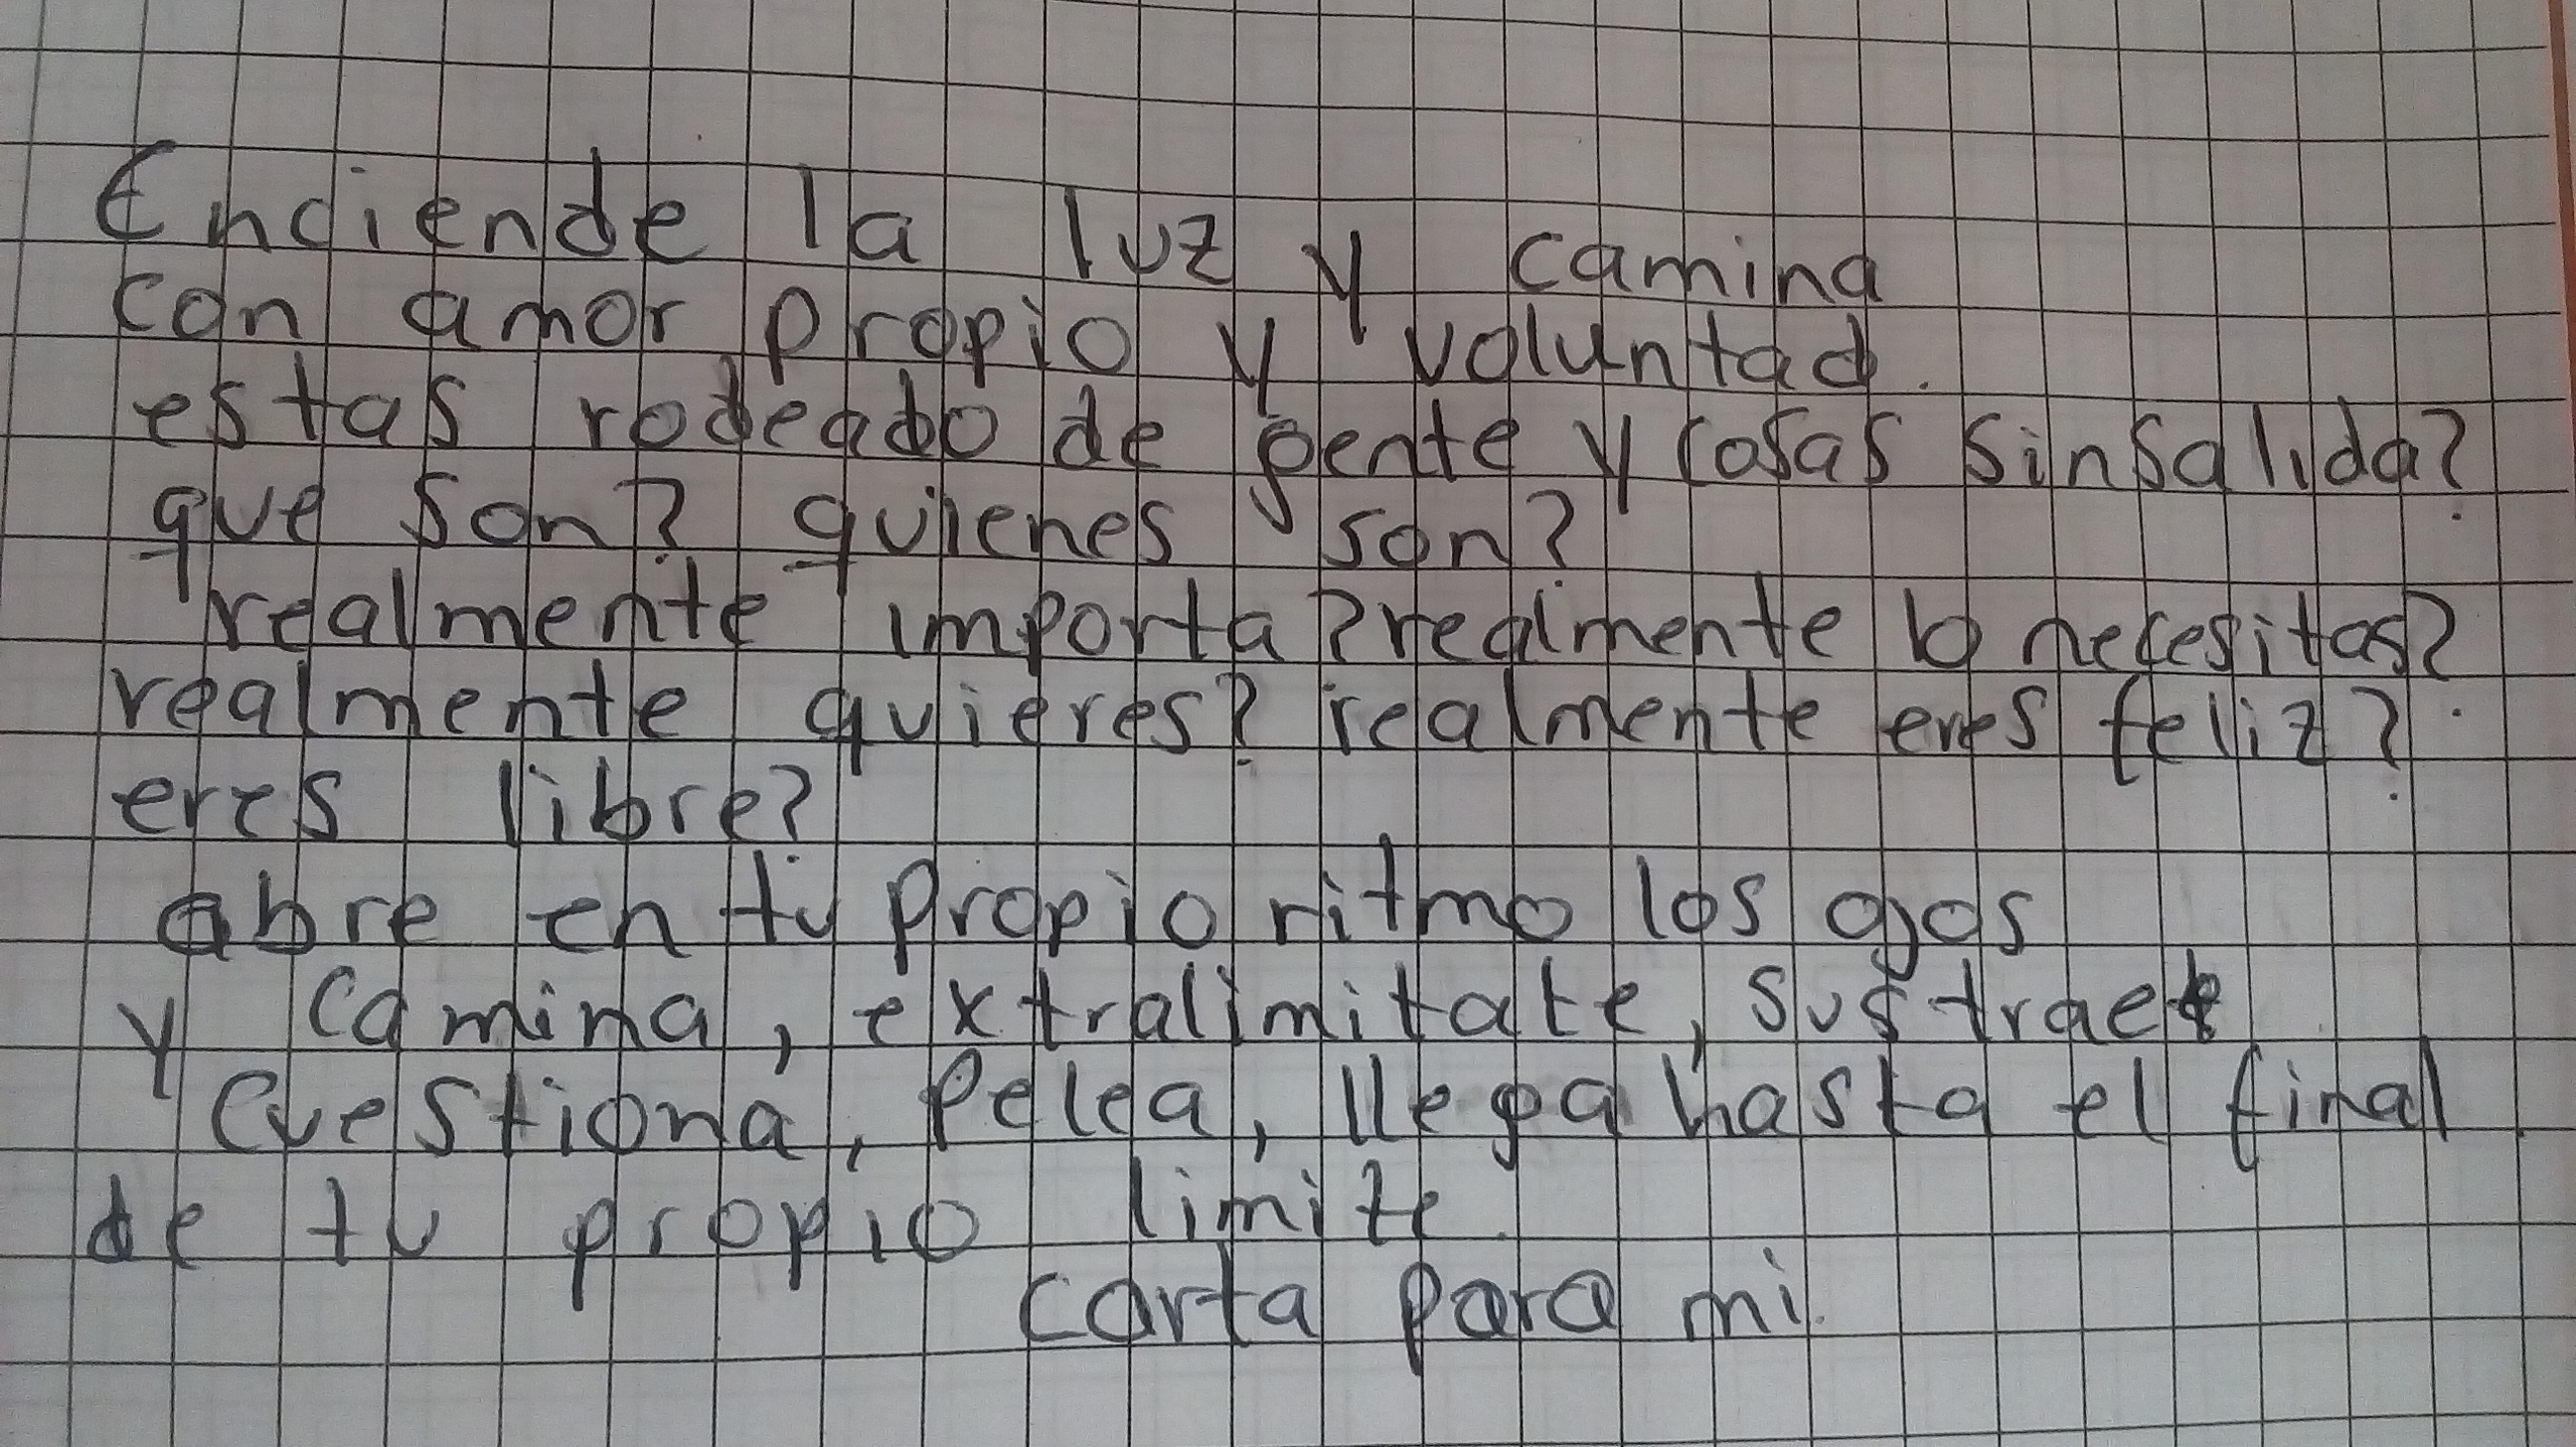 Enciende la luz y camina
con amor propio y voluntad.
estas rodeado de gente y cosas sin salida?
que son? quienes son?
realmente importa? realmente lo necesitas?
realmente quieres? realmente eres feliz?
eres libre?
abre en tu propio ritmo los ojos
y camina, extralimitate, sustraete
cuestiona, pelea, llega hasta el final
de tu propio limite.
carta para mi.